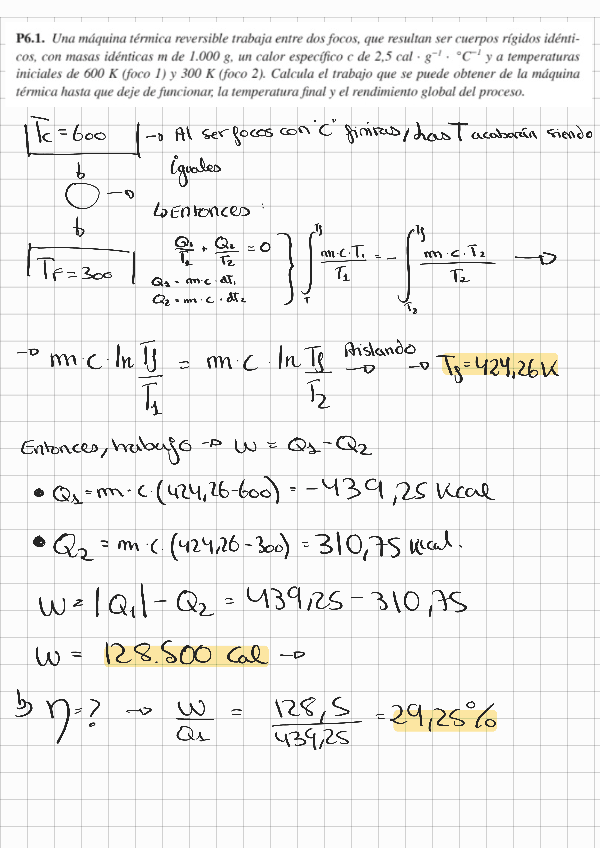 P6.1. Una máquina térmica reversible trabaja entre dos focos, que resultan ser cuerpos rígidos idénti-
cos, con masas idénticas m de 1.000 g, un calor específico c de 2,5 cal · g⁻¹ · °C⁻¹ y a temperaturas
iniciales de 600 K (foco 1) y 300 K (foco 2). Calcula el trabajo que se puede obtener de la máquina
térmica hasta que deje de funcionar, la temperatura final y el rendimiento global del proceso.
Tc = 600 → Al ser focos con "C" finitas, las T acabarán siendo
iguales
↳ Entonces:
TF = 300
Q1/T1 + Q2/T2 = 0
Q1 = m·c·dT1
Q2 = m·c·dT2
∫_T^Tf m·c·T1/T1 = - ∫_T2^Tf m·c·T2/T2 →
→ m·c·ln Tf/T1 = m·c·ln Tf/T2 Aislando → → Tf = 424,26 K
Entonces, trabajo → W = Q1 - Q2
• Q1 = m·c·(424,26-600) = -439,25 Kcal
• Q2 = m·c·(424,26-300) = 310,75 Kcal.
W = |Q1| - Q2 = 439,25 - 310,75
W = 128.500 cal →
b) η = ? → W/Q1 = 128,5/439,25 = 29,25%